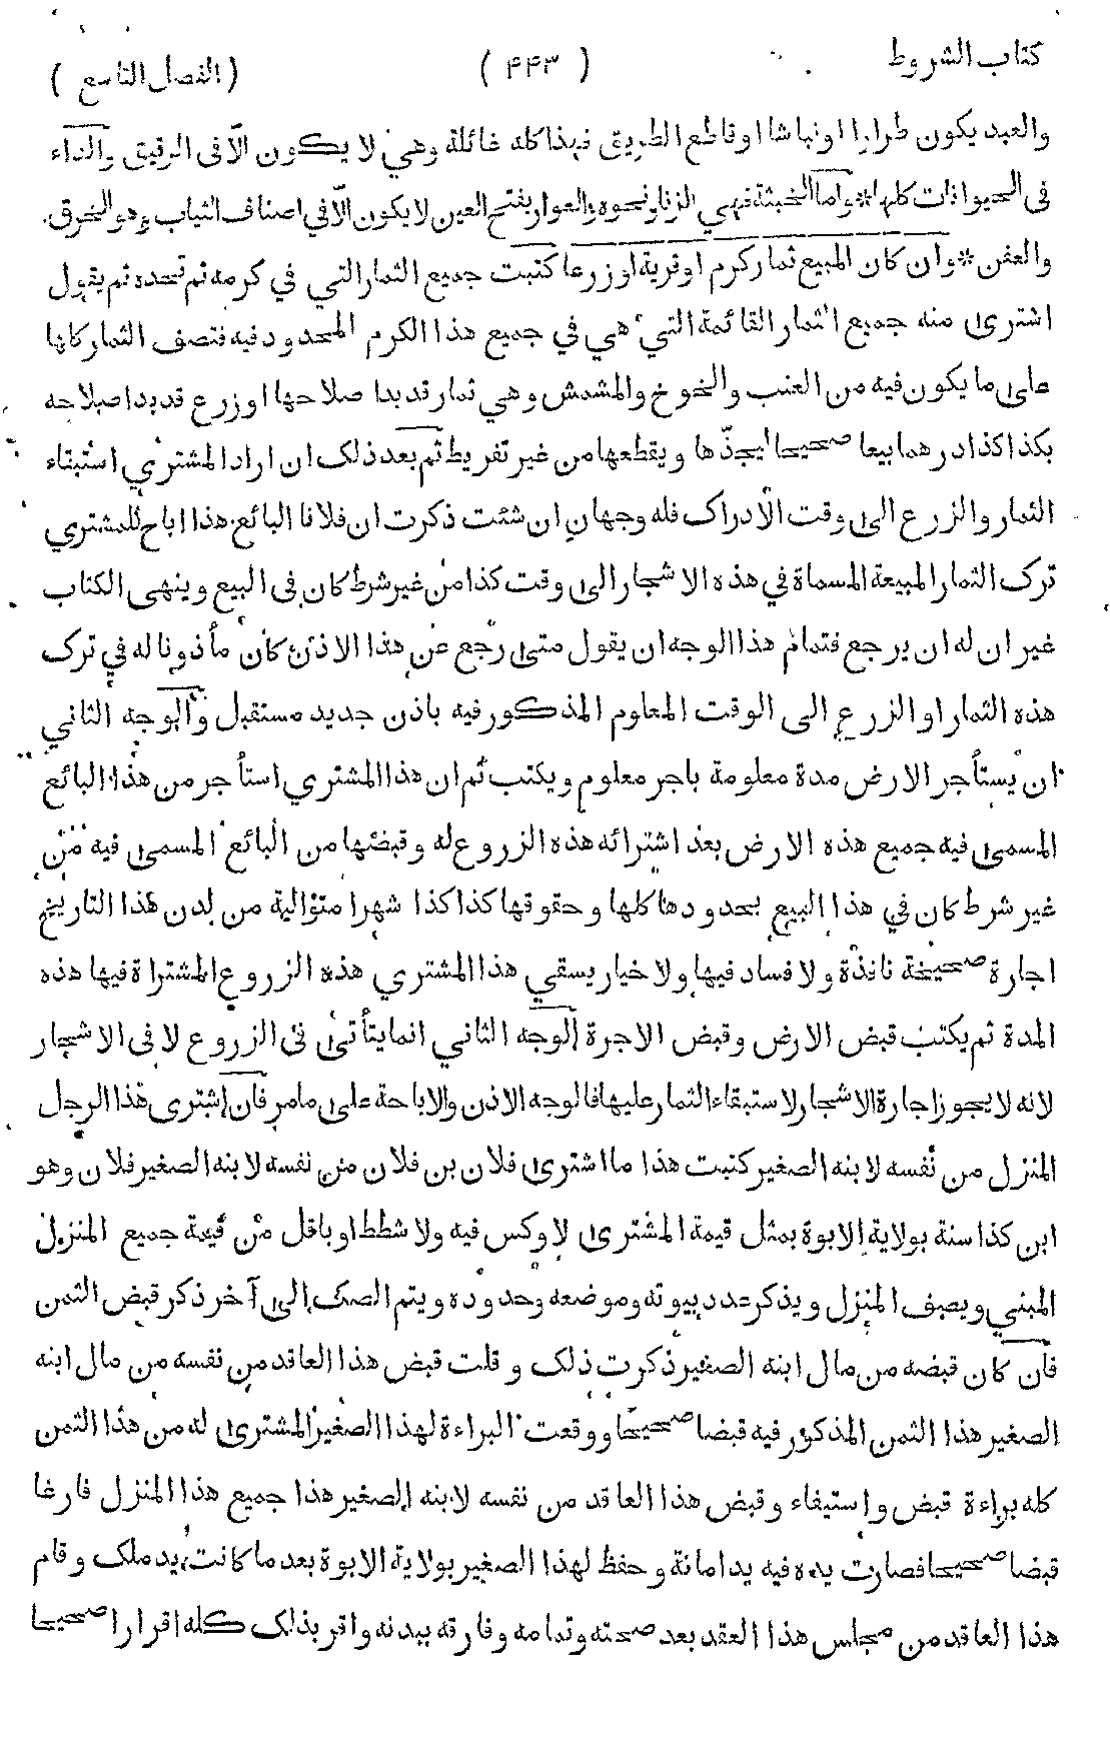 كتاب الشروط
( ۴۴۳ )
( الفصل التاسع )
والعبد يكون طرارا او نباشا او قاطع الطريق فهذا كله غائلة وهي لا يكون الّا فى الرقيق والداء
فى الحيوانات كلها * واما الخبثة فهي الزنا ونحوه والعوار بفتح العين لا يكون الّا في اصناف الثياب وهو الخرق
والعفن * وان كان المبيع ثمار كرم او قرية او زرعا كتبت جميع الثمار التي في كرمه ثم تحده ثم يقول
اشترى منه جميع الثمار القائمة التي هي في جميع هذا الكرم المحدود فيه فتصف الثمار كلها
على ما يكون فيه من العنب والخوخ والمشمش وهي ثمار قد بدا صلاحها او زرع قد بدا صلاحه
بكذا كذا درهما بيعا صحيحا ليجذّها ويقطعها من غير تفريط ثم بعد ذلك ان اراد المشتري استبقاء
الثمار والزرع الى وقت الادراك فله وجهان ان شئت ذكرت ان فلانا البائع هذا اباح للمشتري
ترك الثمار المبيعة المسماة في هذه الاشجار الى وقت كذا من غير شرط كان فى البيع وينهى الكتاب
غير ان له ان يرجع فتمام هذا الوجه ان يقول متى رجع عن هذا الاذن كان مأذونا له في ترك
هذه الثمار او الزرع الى الوقت المعلوم المذكور فيه باذن جديد مستقبل والوجه الثاني
ان يستأجر الارض مدة معلومة باجر معلوم ويكتب ثم ان هذا المشتري استأجر من هذا البائع
المسمى فيه جميع هذه الارض بعد اشترائه هذه الزروع له وقبضها من البائع المسمى فيه من
غير شرط كان في هذا البيع بحدودها كلها وحقوقها كذا كذا شهرا متوالية من لدن هذا التاريخ
اجارة صحيحة نافذة ولا فساد فيها ولا خيار يسقي هذا المشتري هذه الزروع المشتراة فيها هذه
المدة ثم يكتب قبض الارض وقبض الاجرة الوجه الثاني انما يتأتى فى الزروع لا فى الاشجار
لانه لا يجوز اجارة الاشجار لاستبقاء الثمار عليها فالوجه الاذن والاباحة على ما مر فان اشترى هذا الرجل
المنزل من نفسه لابنه الصغير كتبت هذا ما اشترى فلان بن فلان من نفسه لابنه الصغير فلان وهو
ابن كذا سنة بولاية الابوة بمثل قيمة المشترى لا وكس فيه ولا شطط او باقل من قيمة جميع المنزل
المبني ويصف المنزل ويذكر عدد بيوته وموضعه وحدوده ويتم الصك الى آخر ذكر قبض الثمن
فان كان قبضه من مال ابنه الصغير ذكرت ذلك و قلت قبض هذا العاقد من نفسه من مال ابنه
الصغير هذا الثمن المذكور فيه قبضا صحيحا ووقعت البراءة لهذا الصغير المشترى له من هذا الثمن
كله براءة قبض واستيفاء وقبض هذا العاقد من نفسه لابنه الصغير هذا جميع هذا المنزل فارغا
قبضا صحيحا فصارت يده فيه يد امانة وحفظ لهذا الصغير بولاية الابوة بعد ما كانت يد ملك وقام
هذا العاقد من مجلس هذا العقد بعد صحته وتمامه وفارقه ببدنه واقر بذلك كله اقرارا صحيحا